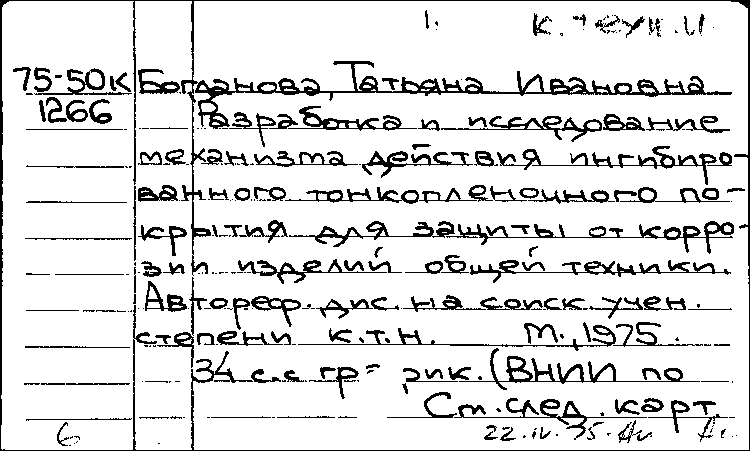 1.
75-50К Богданова, Татьяна Ивановна
1266 Разработка и исследование
механизма действия ингибиро-
ванного тонкопленочного по-
крытия для защиты от корро-
зии изделий общей техники.
Автореф. дис. на соиск. учен.
степени к.т.н. М., 1975.
34 с. с гр= рик. (ВНИИ по
См. след. карт.
6 22.IV.75.